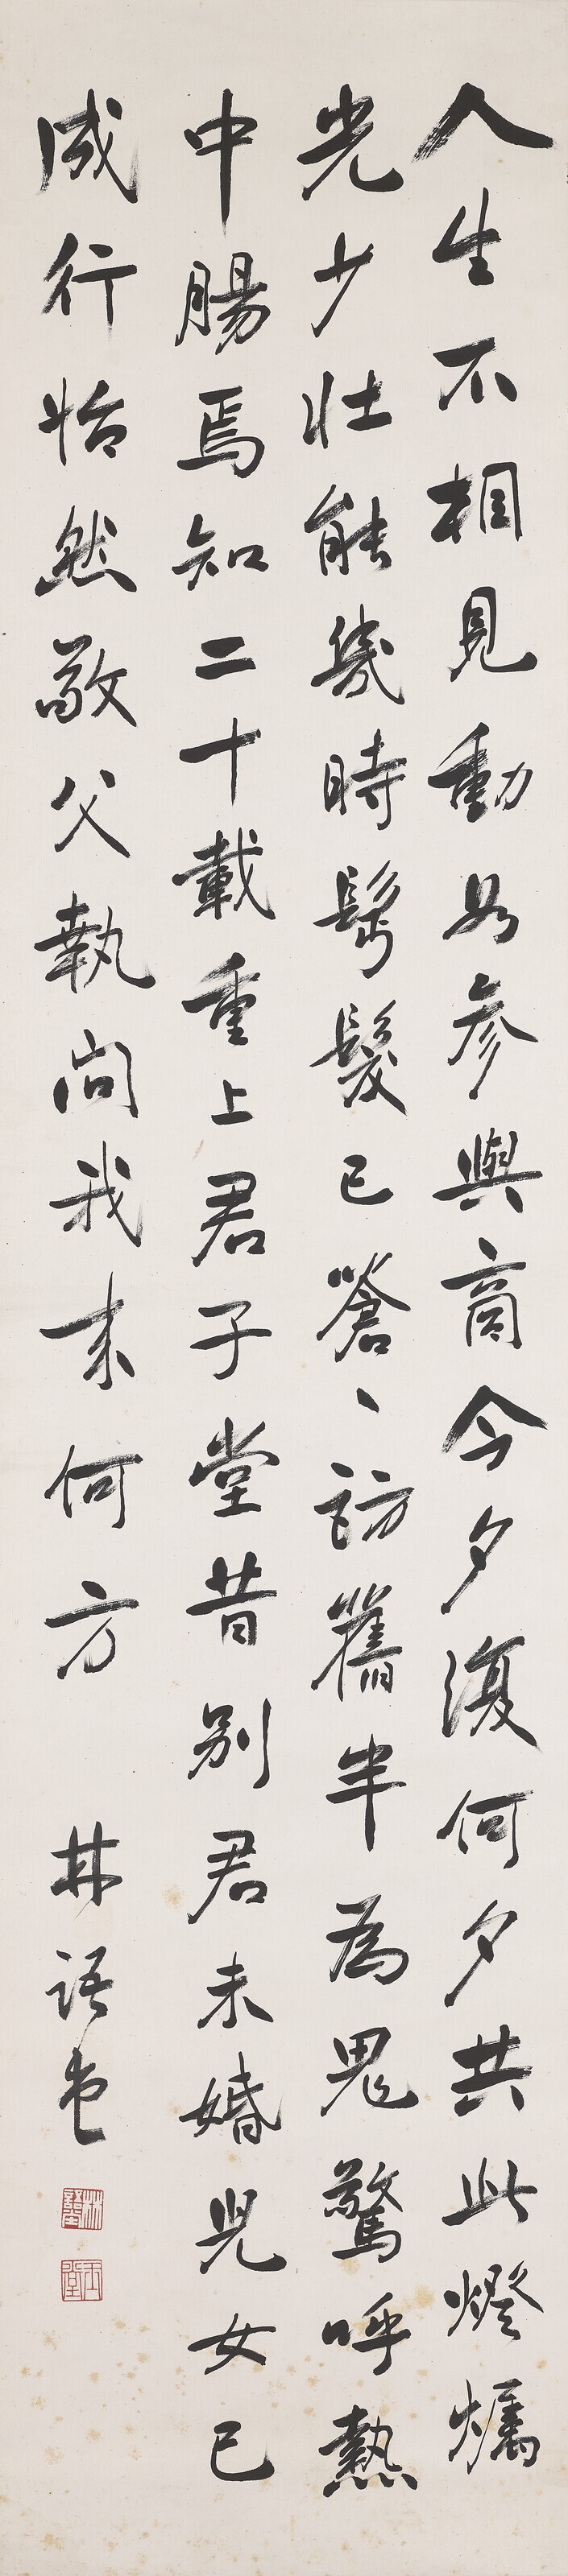 人生不相見動如參與商今夕復何夕共此燈燭
光少壯能幾時鬢髮已蒼丶訪舊半為鬼驚呼熱
中腸焉知二十載重上君子堂昔別君未婚兒女已
成行怡然敬父執問我来何方 林語堂
林語堂
玉堂